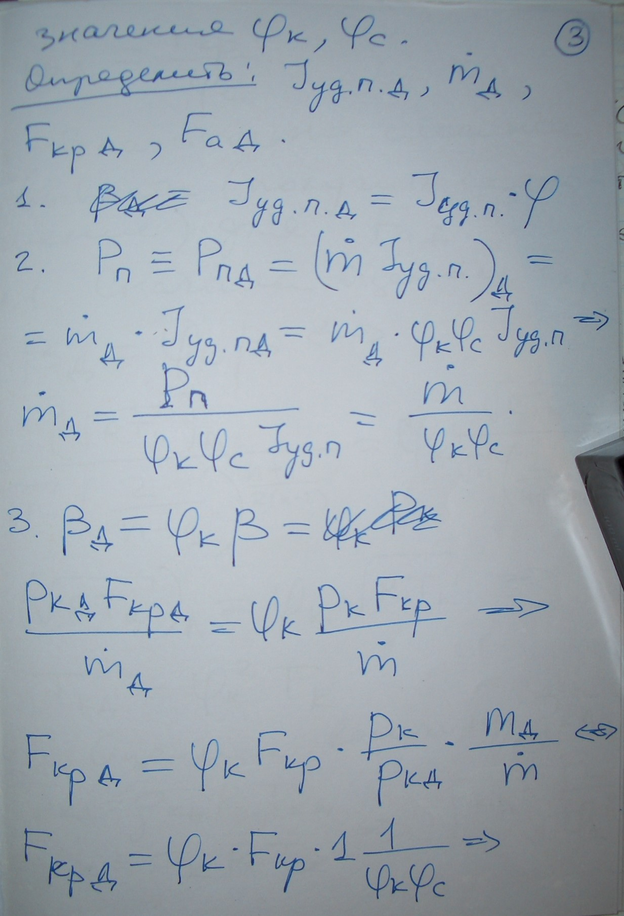 значения φк, φс. ③
Определить: Jуд.п.д, ṁд,
Fкр д, Fад.
1. Jуд.п.д = Jуд.п.·φ
2. Pп ≡ Pпд = (ṁ Jуд.п.)д =
= ṁд · Jуд.пд = ṁд · φкφс Jуд.п ⇒
ṁд = Pп / (φкφс Jуд.п) = ṁ / (φкφс).
3. βд = φк β =
(pкд Fкрд) / ṁд = φк (pк Fкр) / ṁ ⇒
Fкр д = φк Fкр · pк / pкд · mд / ṁ ⇔
Fкр д = φк · Fкр · 1 1 / (φкφс) ⇒